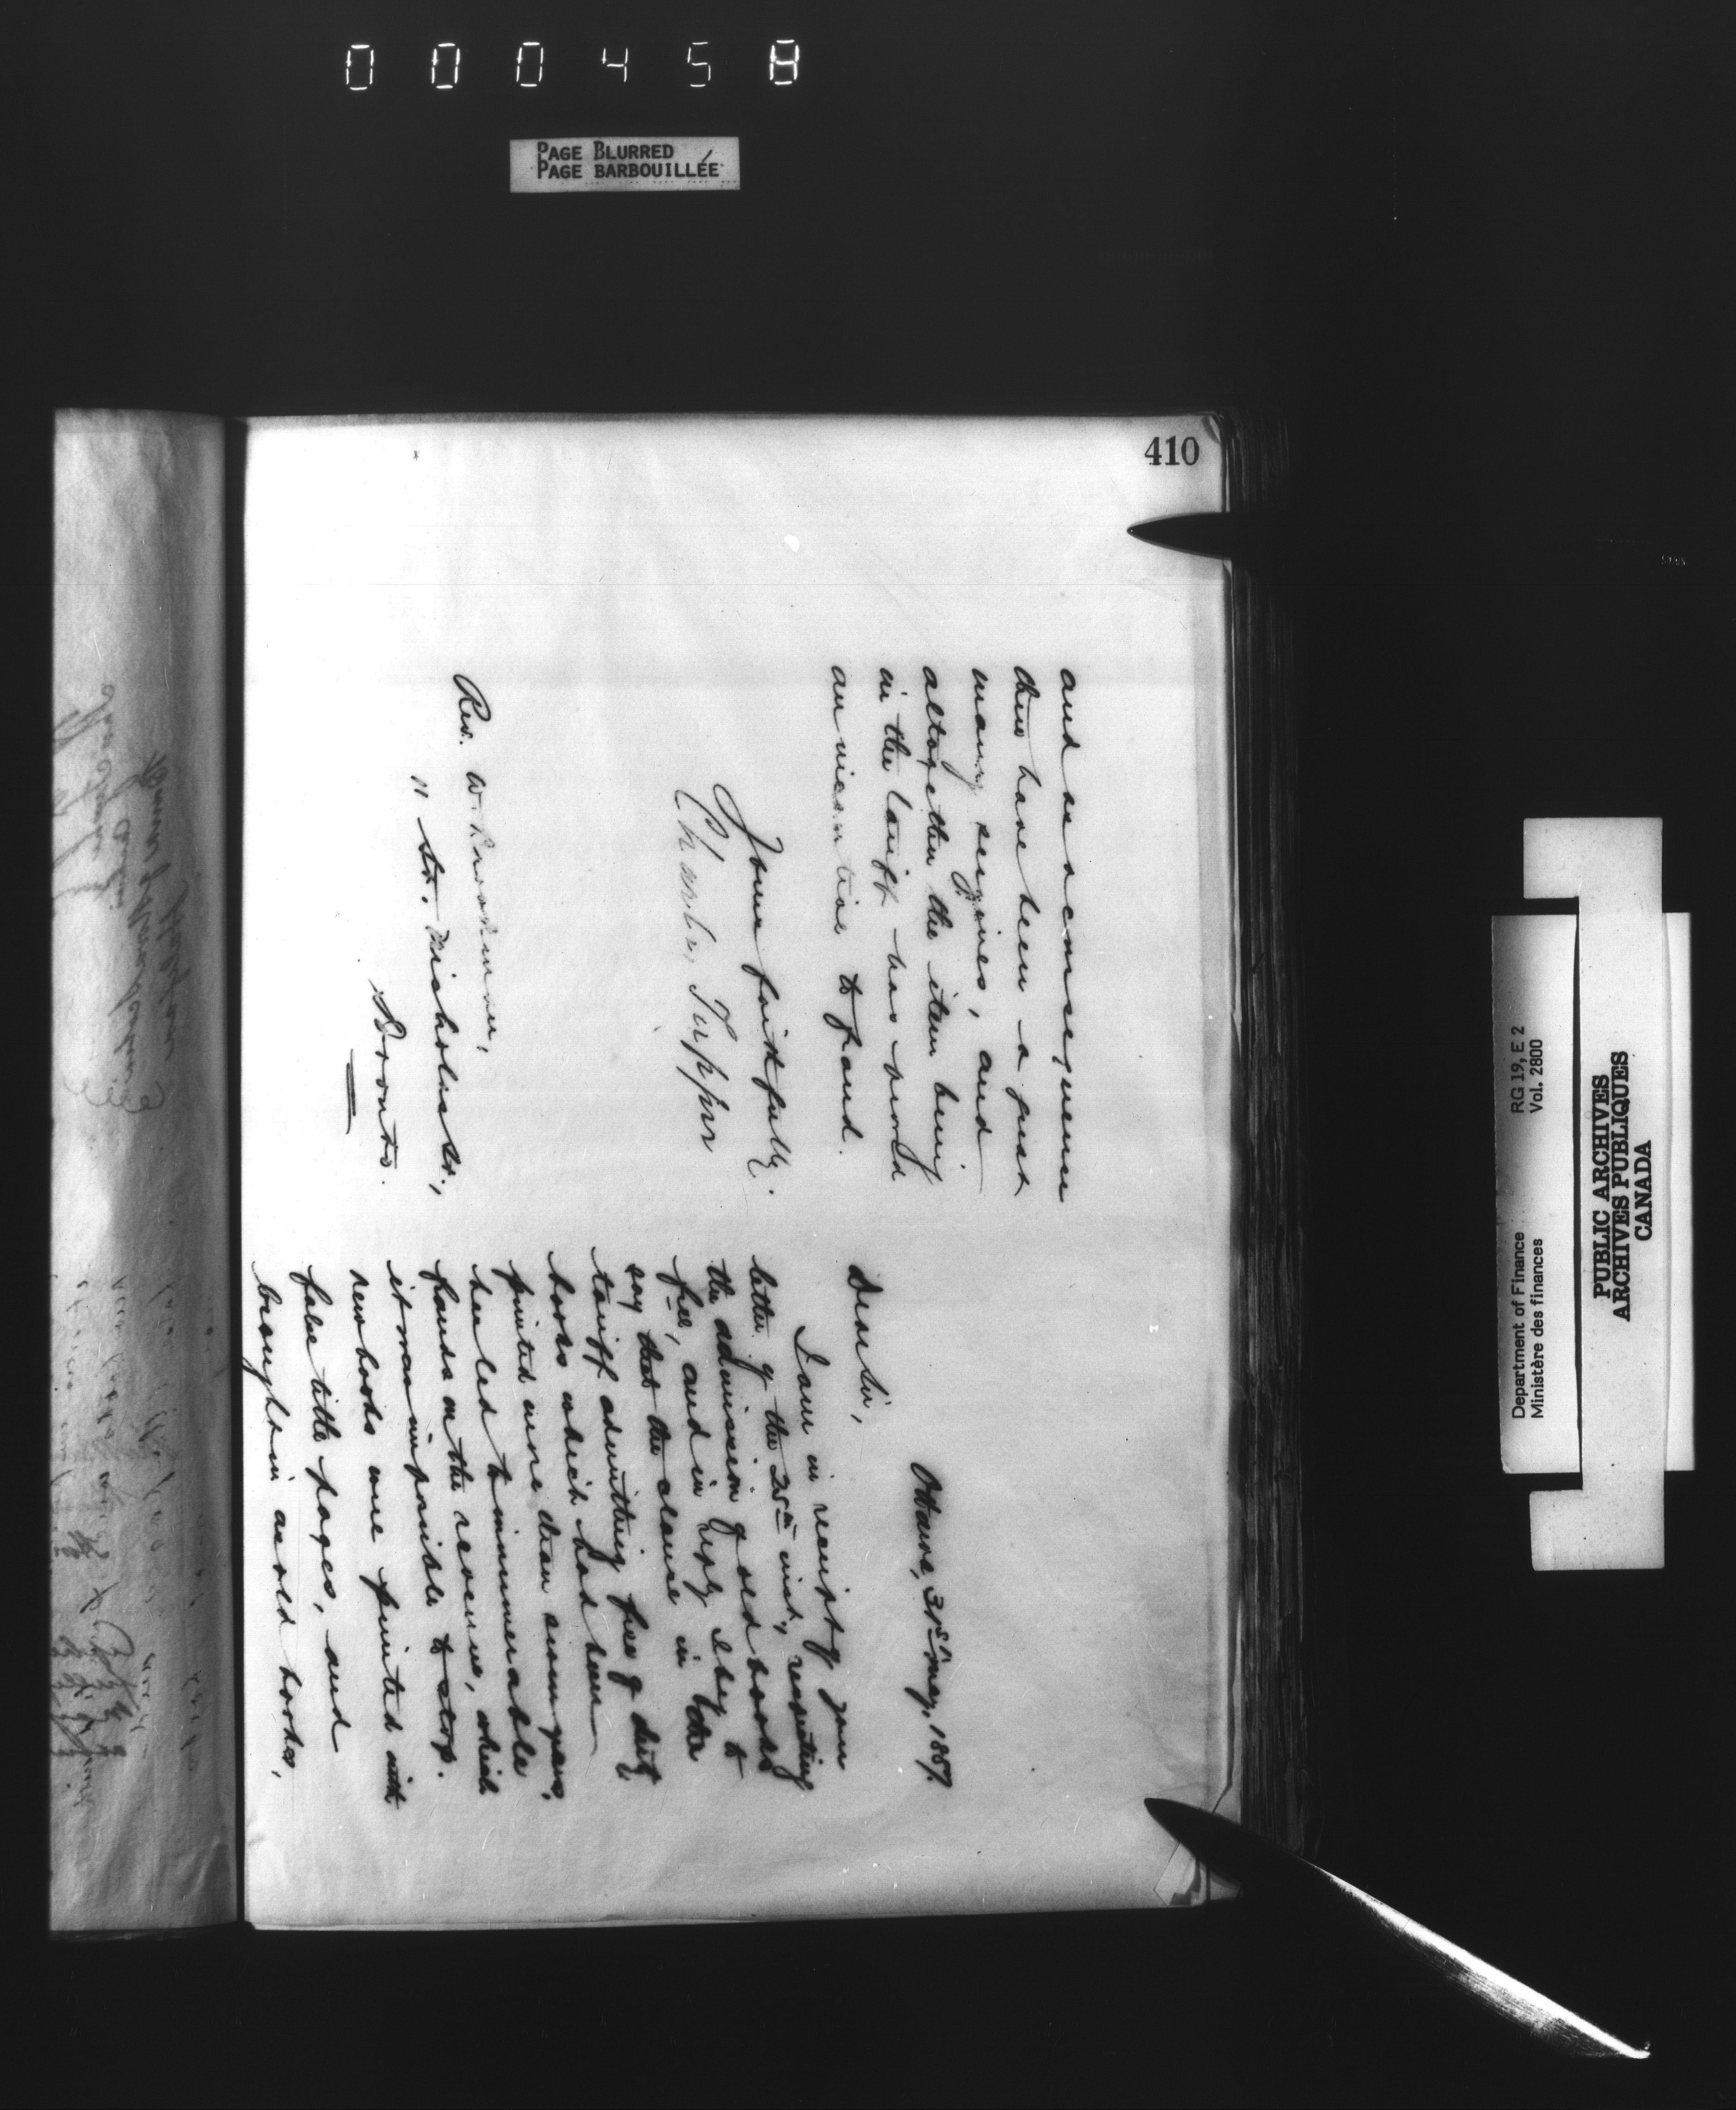 000458
PAGE BLURRED
PAGE BARBOUILLÉE
410
Ottawa, 31st May, 1887.
Dear Sir,
I am in receipt of your
letter of the 25th inst., respecting
the admission of old books
free, and in reply I beg to
say that the clause in the
tariff admitting free of duty
books which had been
printed more than seven years,
had led to innumerable
frauds on the revenue, which
it was impossible to stop.
New books were printed with
false title pages, and
brought in as old books,
and as a consequence
there have been a great
many seizures, and
altogether the item being
in the tariff has proved
an incentive to fraud.
Yours faithfully.
Charles Tupper
Rev. W.
11 St. Nicholas St.,
Toronto.
Department of Finance
Ministère des finances
RG 19, E 2
Vol. 2800
PUBLIC ARCHIVES
ARCHIVES PUBLIQUES
CANADA